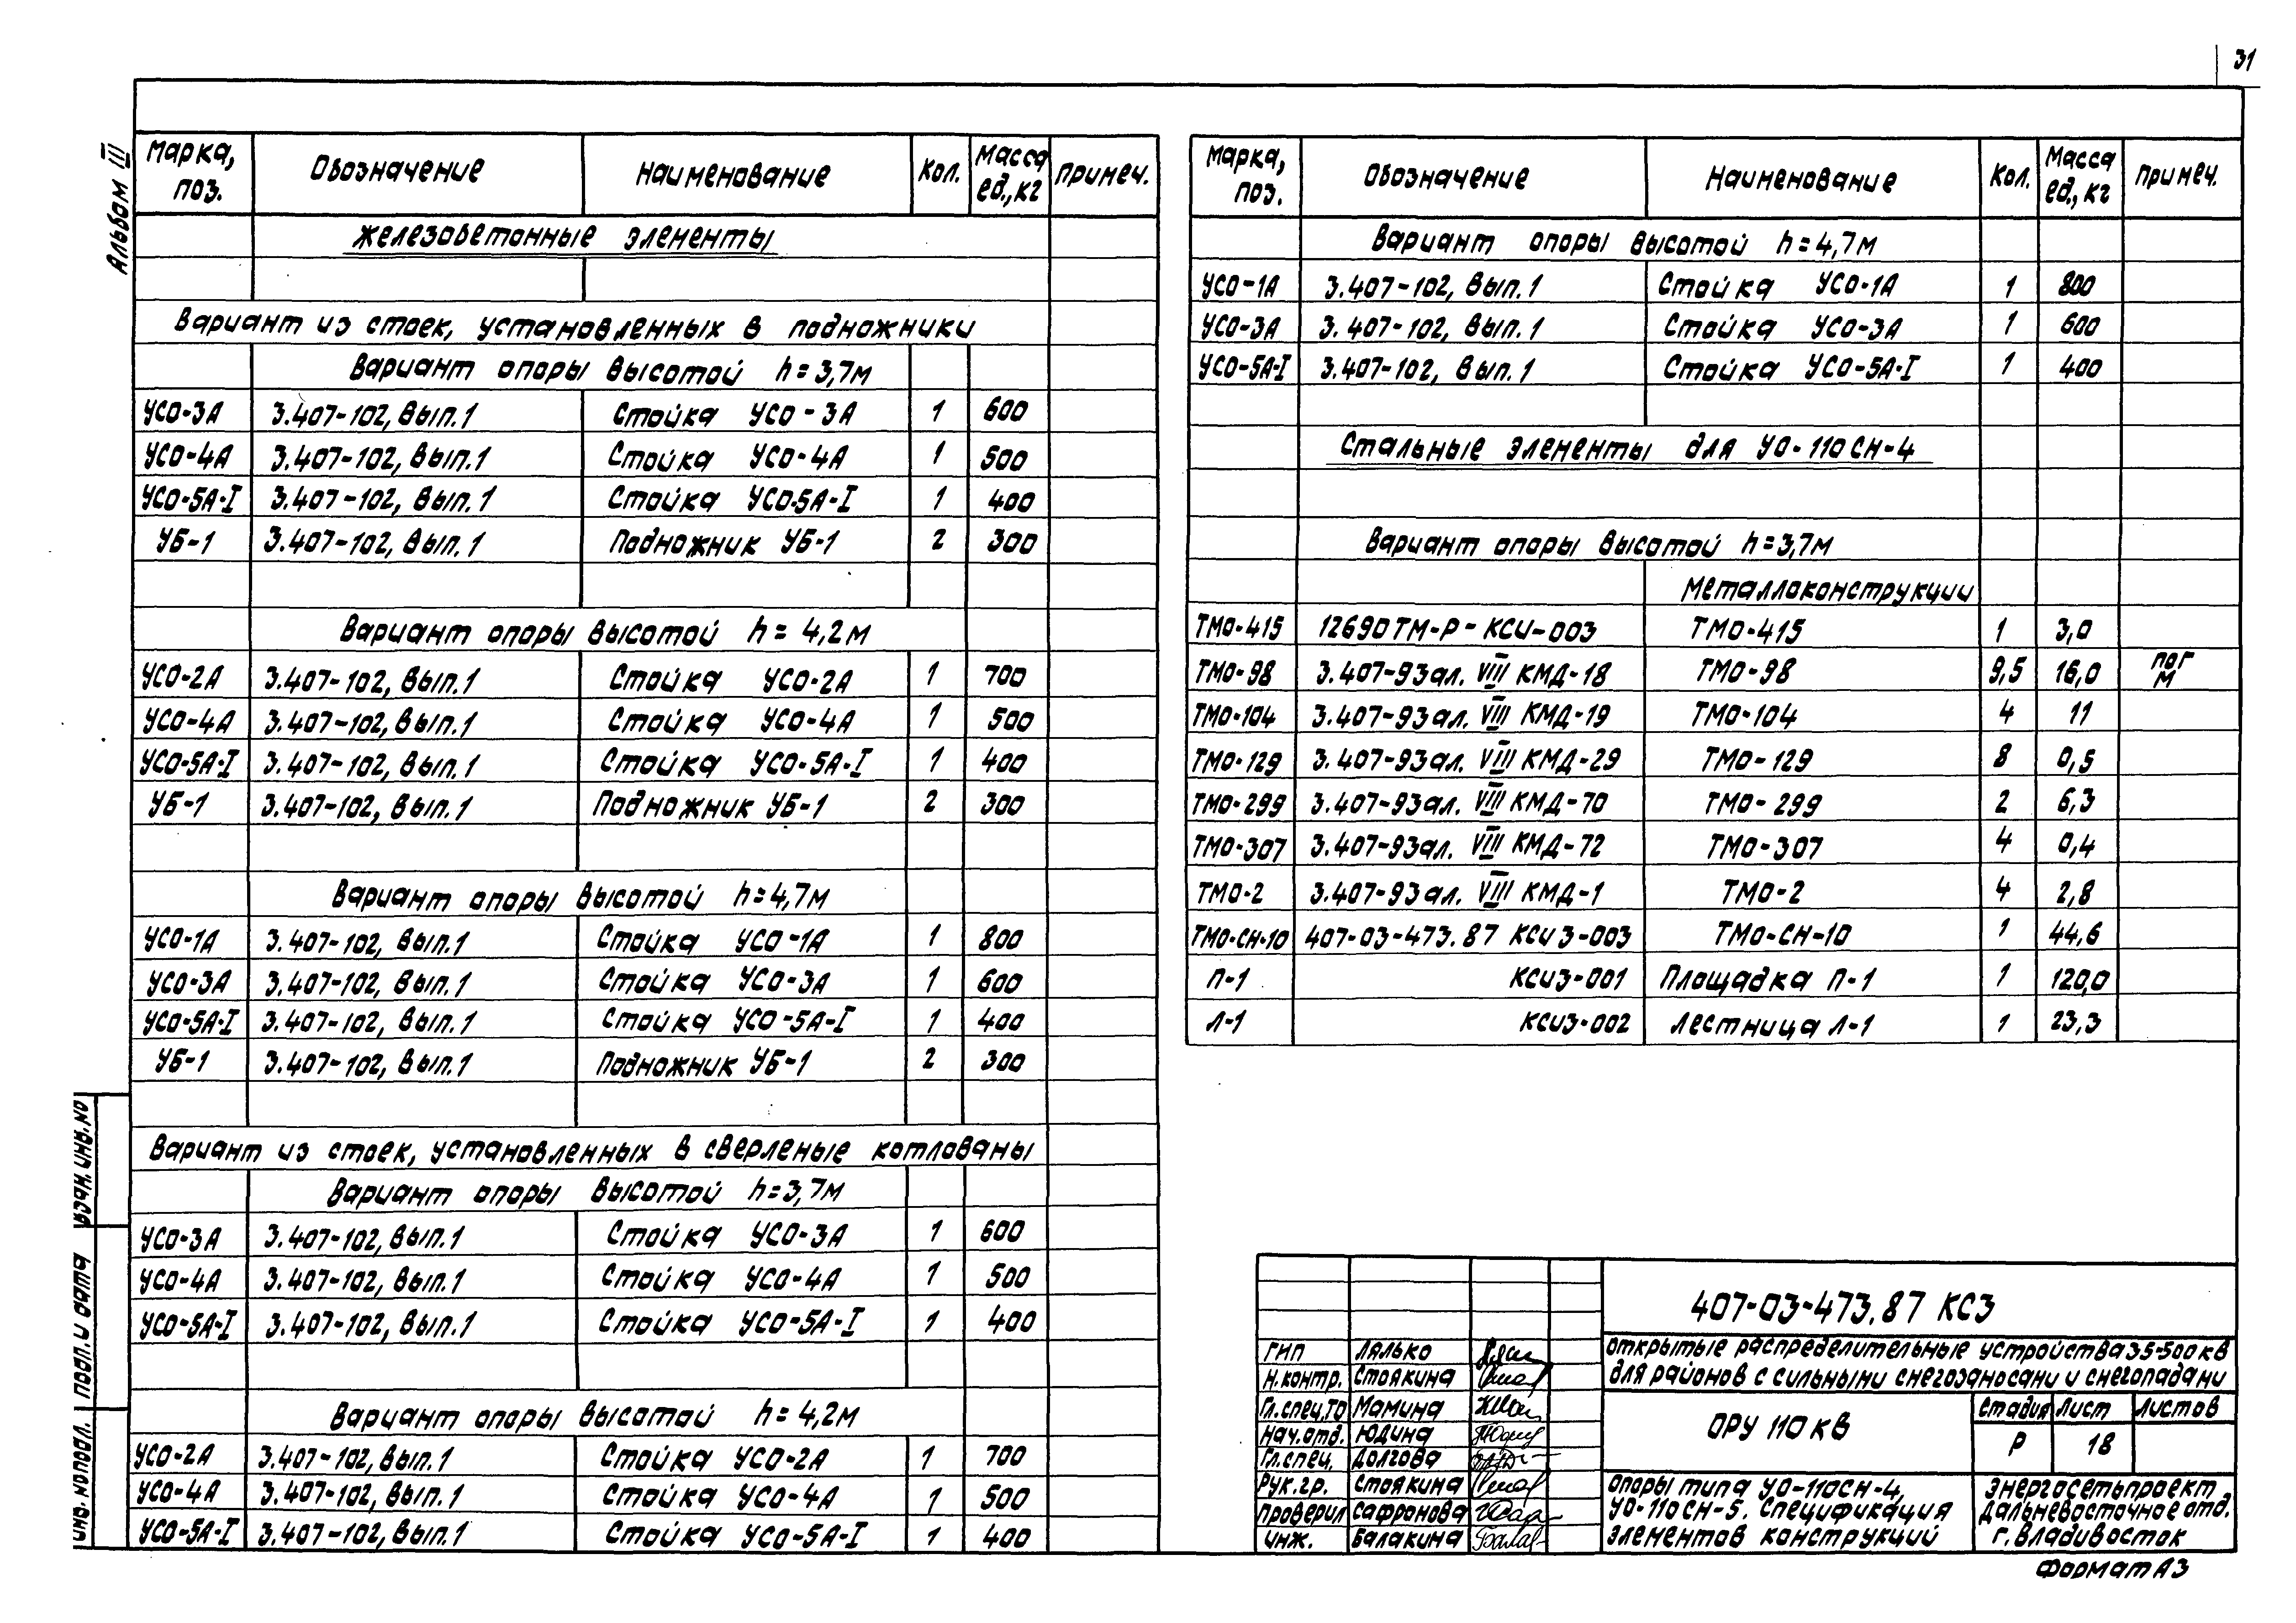 31
Альбом III
Марка, поз. Обозначение Наименование Кол. Масса ед., кг Примеч.
Железобетонные элементы
Вариант из стоек, установленных в подножники
Вариант опоры высотой h=3,7м
УСО-3А 3.407-102, Вып.1 Стойка УСО-3А 1 600
УСО-4А 3.407-102, Вып.1 Стойка УСО-4А 1 500
УСО-5А-I 3.407-102, Вып.1 Стойка УСО-5А-I 1 400
УБ-1 3.407-102, Вып.1 Подножник УБ-1 2 300
Вариант опоры высотой h=4,2м
УСО-2А 3.407-102, Вып.1 Стойка УСО-2А 1 700
УСО-4А 3.407-102, Вып.1 Стойка УСО-4А 1 500
УСО-5А-I 3.407-102, Вып.1 Стойка УСО-5А-I 1 400
УБ-1 3.407-102, Вып.1 Подножник УБ-1 2 300
Вариант опоры высотой h=4,7м
УСО-1А 3.407-102, Вып.1 Стойка УСО-1А 1 800
УСО-3А 3.407-102, Вып.1 Стойка УСО-3А 1 600
УСО-5А-I 3.407-102, Вып.1 Стойка УСО-5А-I 1 400
УБ-1 3.407-102, Вып.1 Подножник УБ-1 2 300
Вариант из стоек, установленных в сверленые котлованы
Вариант опоры высотой h=3,7м
УСО-3А 3.407-102, Вып.1 Стойка УСО-3А 1 600
УСО-4А 3.407-102, Вып.1 Стойка УСО-4А 1 500
УСО-5А-I 3.407-102, Вып.1 Стойка УСО-5А-I 1 400
Вариант опоры высотой h=4,2м
УСО-2А 3.407-102, Вып.1 Стойка УСО-2А 1 700
УСО-4А 3.407-102, Вып.1 Стойка УСО-4А 1 500
УСО-5А-I 3.407-102, Вып.1 Стойка УСО-5А-I 1 400
Марка, поз. Обозначение Наименование Кол. Масса ед., кг Примеч.
Вариант опоры высотой h=4,7м
УСО-1А 3.407-102, Вып.1 Стойка УСО-1А 1 800
УСО-3А 3.407-102, Вып.1 Стойка УСО-3А 1 600
УСО-5А-I 3.407-102, Вып.1 Стойка УСО-5А-I 1 400
Стальные элементы для УО-110СН-4
Вариант опоры высотой h=3,7м
Металлоконструкции
ТМО-415 12690ТМ-Р-КСИ-003 ТМО-415 1 3,0
ТМО-98 3.407-93ал. VIII КМД-18 ТМО-98 9,5 16,0 пог м
ТМО-104 3.407-93ал. VIII КМД-19 ТМО-104 4 11
ТМО-129 3.407-93ал. VIII КМД-29 ТМО-129 8 0,5
ТМО-299 3.407-93ал. VIII КМД-70 ТМО-299 2 6,3
ТМО-307 3.407-93ал. VIII КМД-72 ТМО-307 4 0,4
ТМО-2 3.407-93ал. VIII КМД-1 ТМО-2 4 2,8
ТМО-СН-10 407-03-473.87 КСИЗ-003 ТМО-СН-10 1 44,6
П-1 КСИЗ-001 Площадка П-1 1 120,0
Л-1 КСИЗ-002 Лестница Л-1 1 23,3
407-03-473.87 КС3
Открытые распределительные устройства 35-500кВ
для районов с сильными снегозаносами и снегопадами
ГИП Лялько
Н.контр. Стоякина
Гл.спец.ТО Мамина
Нач.отд. Юдина
Гл.спец. Долгова
Рук.гр. Стоякина
Проверил Сафронова
Инж. Балакина
ОРУ 110кВ
Стадия Лист Листов
Р 18
Опоры типа УО-110СН-4,
УО-110СН-5. Спецификация
элементов конструкций
Энергосетьпроект
Дальневосточное отд.
г. Владивосток
Формат А3
Инв.№подл. Подп. и дата Взам.инв.№